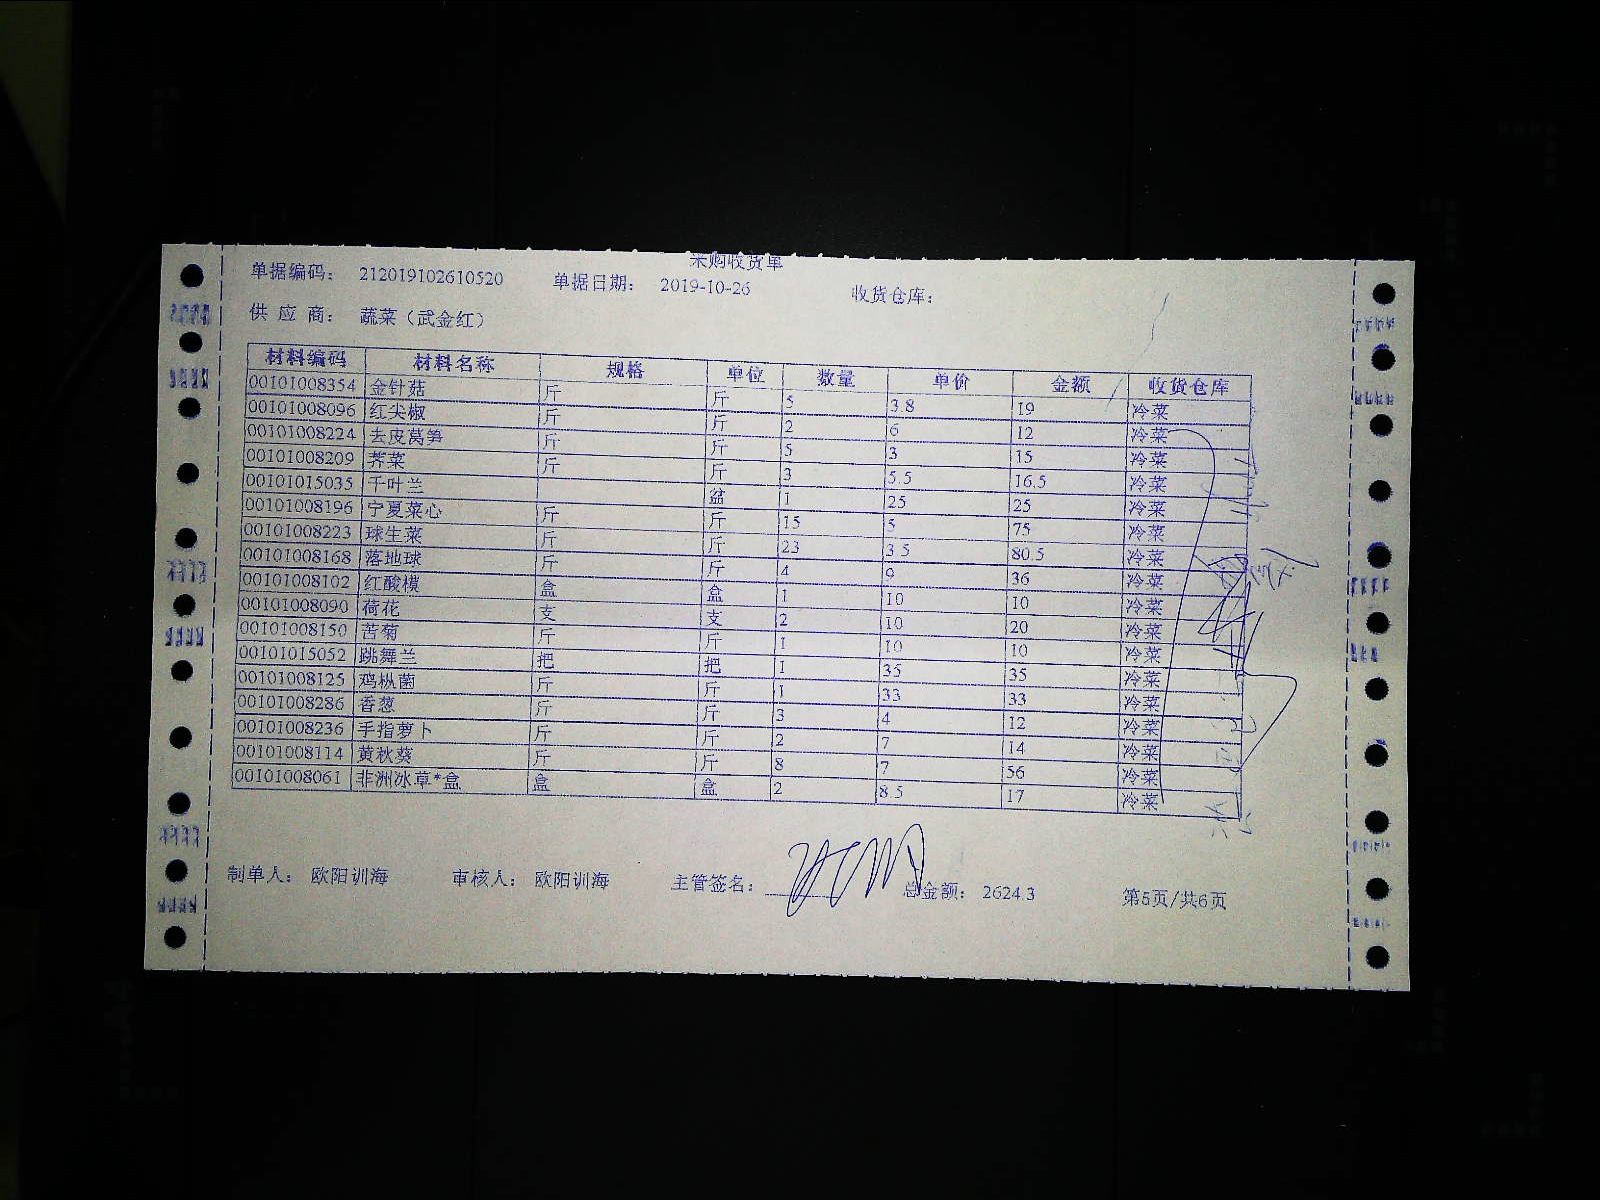 采购收货单
单据编码： 212019102610520 单据日期： 2019-10-26 收货仓库：
供 应 商： 蔬菜（武金红）
材料编码 材料名称 规格 单位 数量 单价 金额 收货仓库
00101008354 金针菇 斤 斤 5 3.8 19 冷菜
00101008096 红尖椒 斤 斤 2 6 12 冷菜
00101008224 去皮莴笋 斤 斤 5 3 15 冷菜
00101008209 荠菜 斤 斤 3 5.5 16.5 冷菜
00101015035 千叶兰 盆 1 25 25 冷菜
00101008196 宁夏菜心 斤 斤 15 5 75 冷菜
00101008223 球生菜 斤 斤 23 3.5 80.5 冷菜
00101008168 落地球 斤 斤 4 9 36 冷菜
00101008102 红酸模 盒 盒 1 10 10 冷菜
00101008090 荷花 支 支 2 10 20 冷菜
00101008150 苦菊 斤 斤 1 10 10 冷菜
00101015052 跳舞兰 把 把 1 35 35 冷菜
00101008125 鸡枞菌 斤 斤 1 33 33 冷菜
00101008286 香葱 斤 斤 3 4 12 冷菜
00101008236 手指萝卜 斤 斤 2 7 14 冷菜
00101008114 黄秋葵 斤 斤 8 7 56 冷菜
00101008061 非洲冰草*盒 盒 盒 2 8.5 17 冷菜
制单人： 欧阳训海 审核人： 欧阳训海 主管签名： 总金额： 2624.3 第5页/共6页